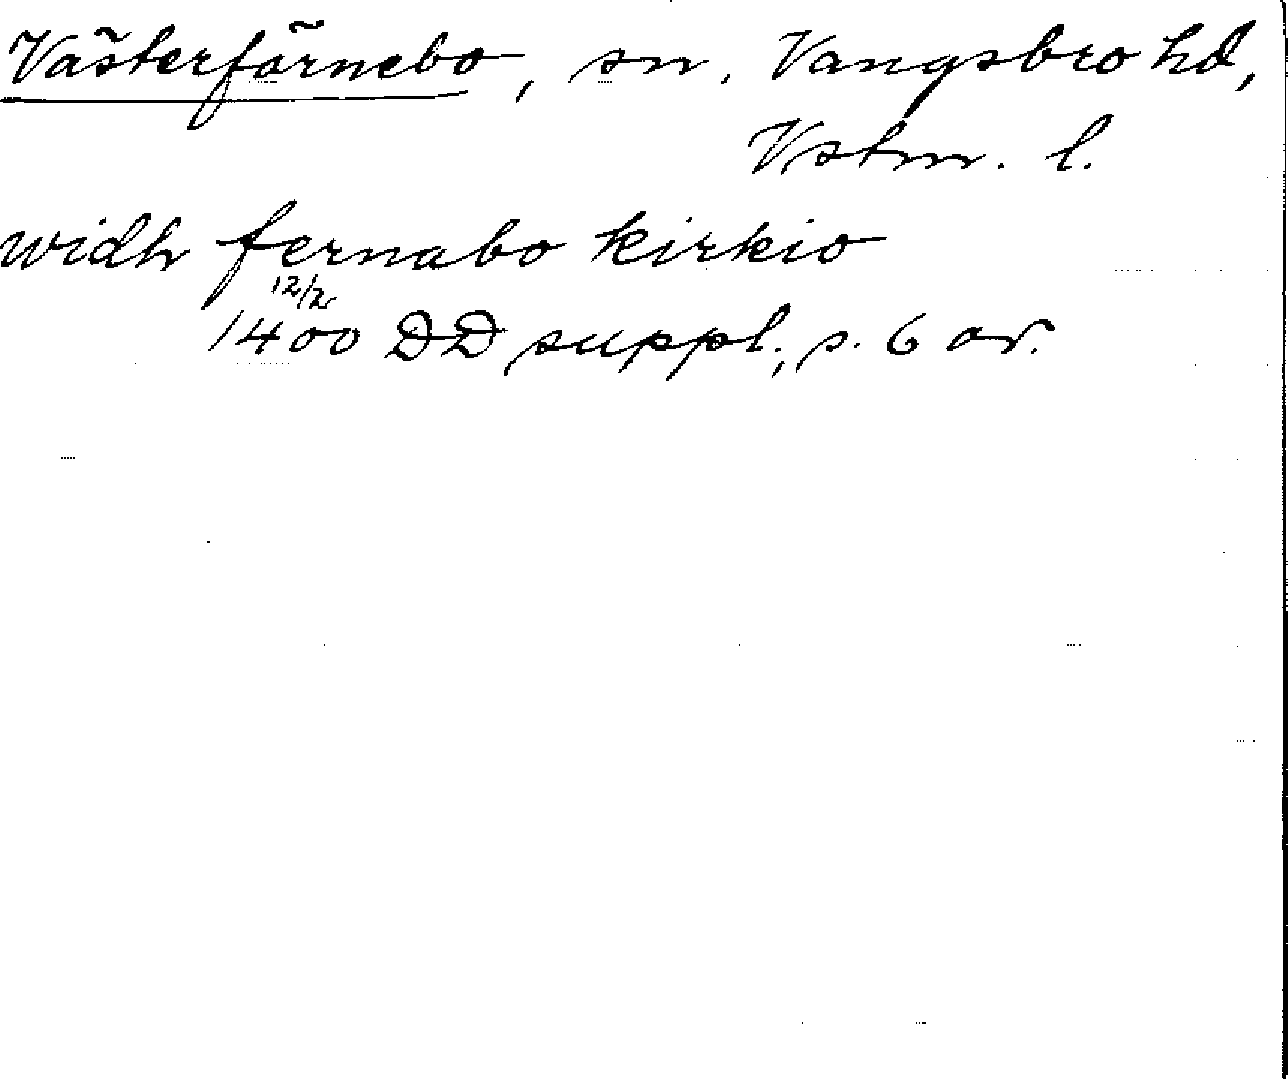 Västerfärnebo, sn, Vangsbro hd,
Vstm. l.
widh fernabo kirkio
12/2
1400 DD suppl., s. 6 av.